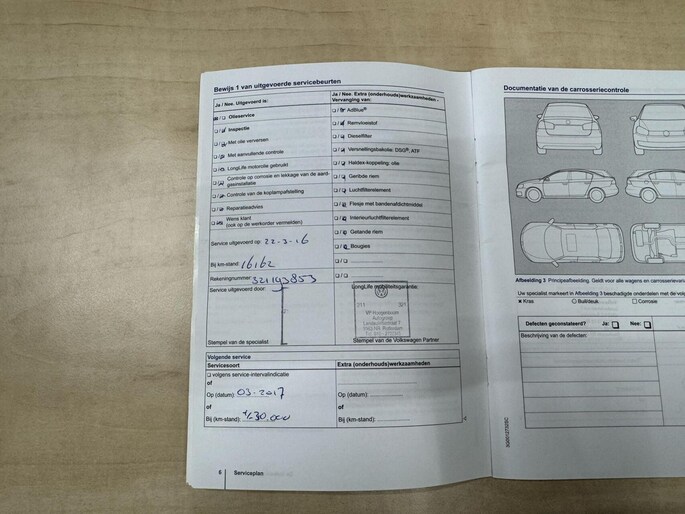 Bewijs 1 van uitgevoerde servicebeurten
Ja / Nee. Uitgevoerd is:
Olieservice
Inspectie
Met olie verversen
Met aanvullende controle
LongLife motorolie gebruikt
Controle op corrosie en lekkage van de aard-
gasinstallatie
Controle van de koplampafstelling
Reparatieadvies
Wens klant
(ook op de werkorder vermelden)
Service uitgevoerd op: 22-3-16
Bij km-stand: 16162
Rekeningnummer: 321193853
Service uitgevoerd door:
Stempel van de specialist
Ja / Nee. Extra (onderhouds)werkzaamheden -
Vervanging van:
AdBlue®
Remvloeistof
Dieselfilter
Versnellingsbakolie: DSG®, ATF
Haldex-koppeling: olie
Geribde riem
Luchtfilterelement
Flesje met bandenafdichtmiddel
Interieurluchtfilterelement
Getande riem
Bougies
LongLife mobiliteitsgarantie:
Stempel van de Volkswagen Partner
Volgende service
Servicesoort
volgens service-intervalindicatie
of
Op (datum): 03-2017
of
Bij (km-stand): 30.000
Extra (onderhouds)werkzaamheden
Op (datum):
of
Bij (km-stand):
6 Serviceplan
Documentatie van de carrosseriecontrole
Afbeelding 3 Principeafbeelding. Geldt voor alle wagens en carrosserievaria
Uw specialist markeert in Afbeelding 3 beschadigde onderdelen met de volg
Kras Buil/deuk Corrosie
Defecten geconstateerd? Ja: Nee:
Beschrijving van de defecten: